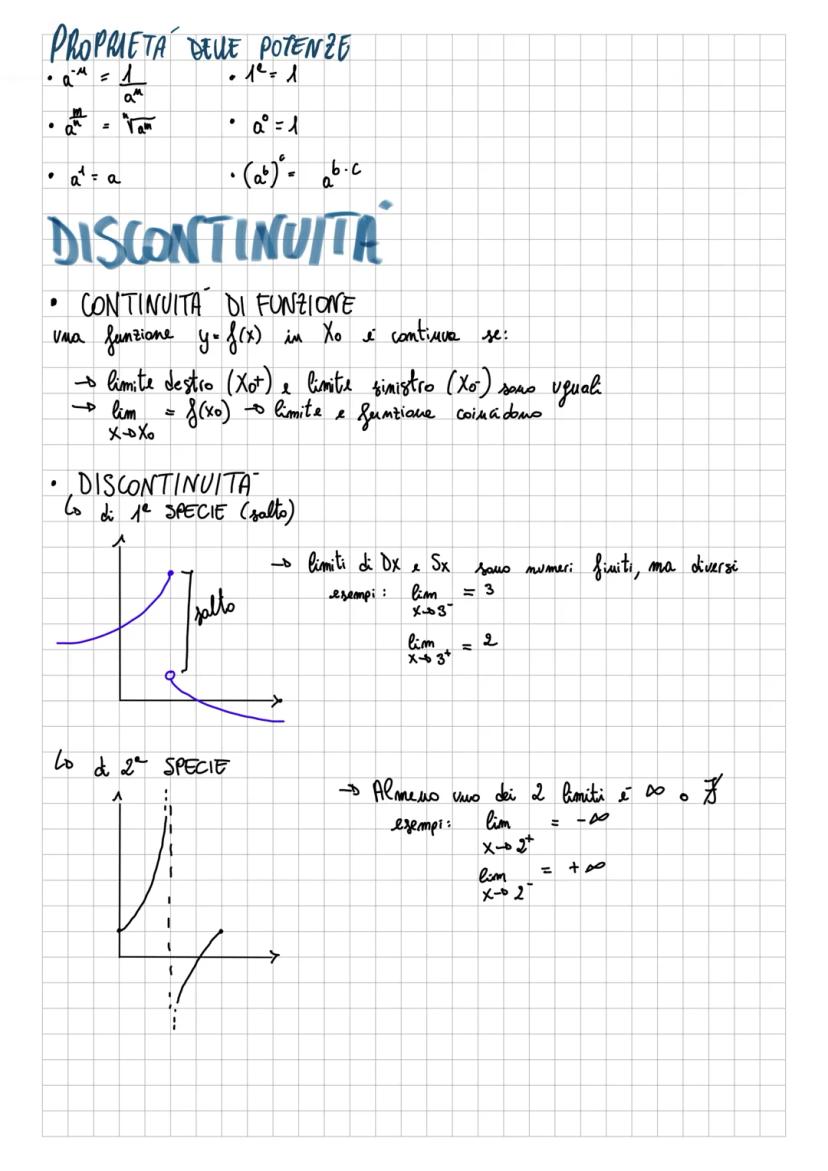 PROPRIETA´ DELLE POTENZE
• a⁻ⁿ = 1/aⁿ • 1ᵉ = 1
• a^(m/n) = ⁿ√aᵐ • a⁰ = 1
• a¹ = a • (aᵇ)ᶜ = a^(b·c)
DISCONTINUITA´
• CONTINUITA´ DI FUNZIONE
una funzione y = f(x) in X₀ è continua se:
→ limite destro (X₀⁺) e limite sinistro (X₀⁻) sono uguali
→ lim = f(x₀) → limite e funzione coincidono
x→X₀
• DISCONTINUITA´
↳ di 1ª SPECIE (salto)
→ limiti di Dx e Sx sono numeri finiti, ma diversi
salto
esempi: lim = 3
x→3⁻
lim = 2
x→3⁺
↳ di 2ª SPECIE
→ Almeno uno dei 2 limiti è ∞ o ∄
esempi: lim = -∞
x→2⁺
lim = +∞
x→2⁻